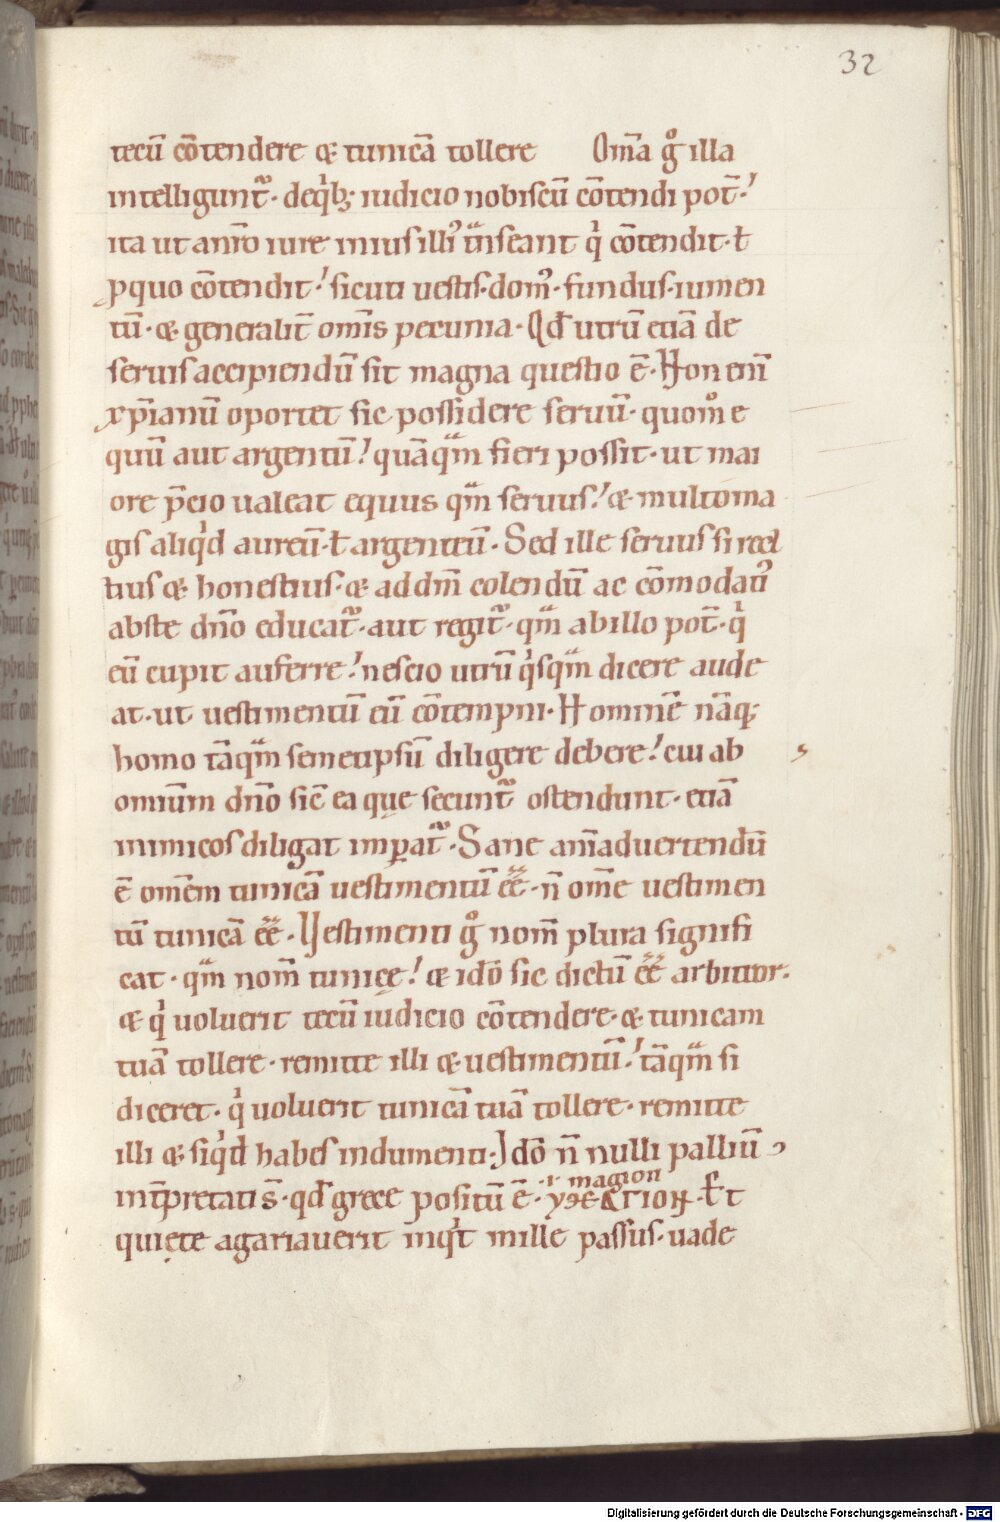 32
tecū cōtendere & tunicā tollere Om̄a gͦ illa
intelligunt᷑· deqͥb; iudicio nobiscū cōtendi pot̄·
ita ut anr̄o iure in ius illiꝰ t͂nseant qͥ cōtendit· ł
ꝓquo cōtendit· sicuti uestis· domꝰ· fundus· iumen
tū· & generalit̄ om̄is pecunia· Qđ utrū etiā de
seruis accipiendū sit magna questio ē· Non eni̅
xp̄ianū oportet sic possidere seruū· quom̊ e
quū aut argentū· quāqͣm fieri possit· ut mai
ore p̄cio ualeat equus qͣm seruus· & multo ma
gis aliqͥd aureū· ł argenteū· Sed ille seruus si rec
tius & honestius· & ad dm̄ colendū ac cōmodatiꝰ
abste dn̄o educat᷑· aut regit᷑· qͣm abillo pot̄· qͥ
eū cupit auferre· nescio utrū qͥsqͣm dicere aude
at· ut uestimentū eū cōtempni· Hominē nāq;
homo tāqͣm semetipsū diligere debere· cui ab
omium dn̄o sic̄ ea que secunt᷑ ostendunt· etiā
inimicos diligat imꝑat᷑· Sane ani̅aduertendū
ē om̄em tunicā uestimentū ēē· n̄ om̄e uestimen
tū tunicā ēē· Vestimenti gͦ nom̄ plura signifi
cat· qͣm nom̄ tunicę· & idō sic dictū ēē arbitror·
& qͥ uoluerit tecū iudicio cōtendere· & tunicam
tuā tollere· remitte illi & uestimentū· tāqͣm si
diceret· qͥ uoluerit tunicā tuā tollere· remitte
illi & siqͥd habes indumenti· Idō n̄ nulli palliū
int̄pretati s̄· qđ grece positū ē·
·i· magion
Et
quięte agariauerit inqͥt mille passus· uade
Digitalisierung gefördert durch die Deutsche Forschungsgemeinschaft - DFG